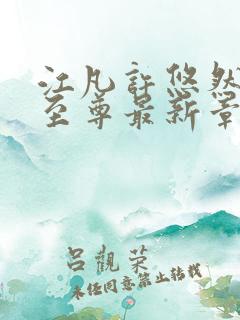 江凡許悠然
至尊最新章
呂觀荣
未经同意禁止转载